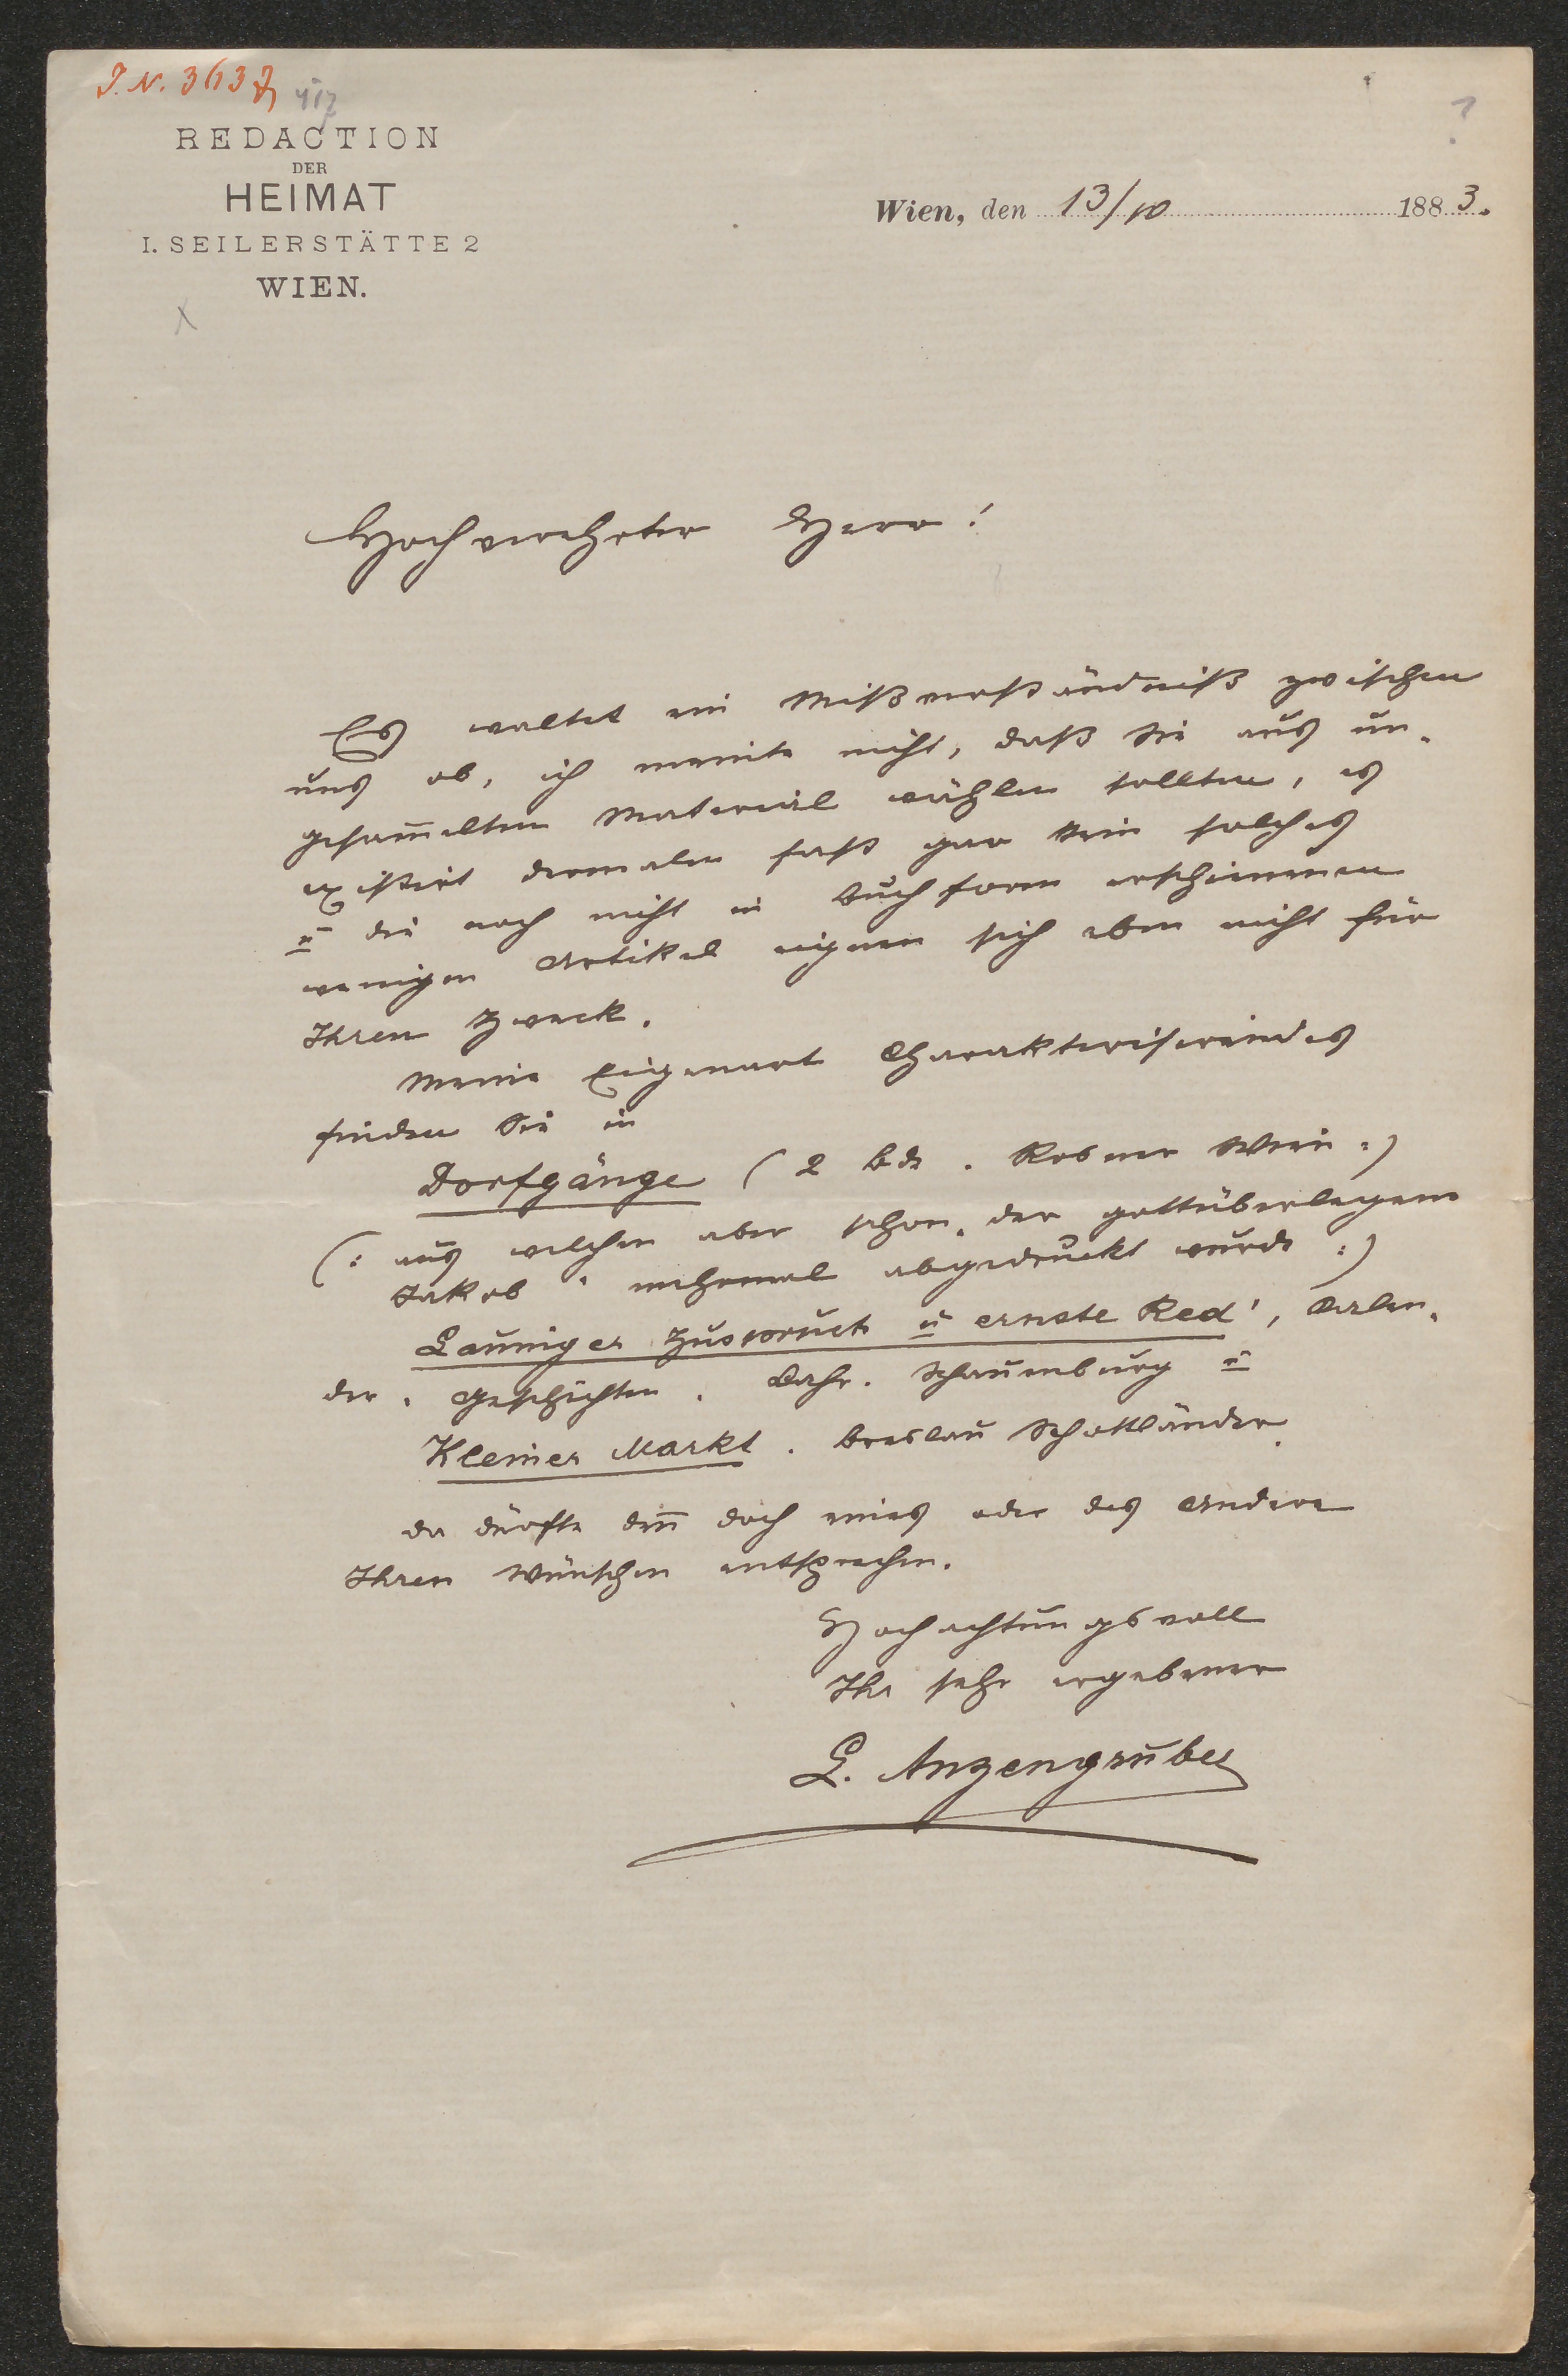 J. N. 3637
REDACTION
DER
HEIMAT
I. SEILERSTÄTTE 2
WIEN.
?
Wien, den 13/10 1883.
Hochverehrter Herr!
Es waltet ein Mißverständniß zwischen
uns ob, ich meinte nicht, daß Sie aus un-
gesam̄elten Material wählen sollten, es
existirt dermalen fast gar kein solches
ū die noch nicht in Buchform erschienenen
wenigen Artikel eignen sich eben nicht für
Ihren Zweck.
Meine Eigenart Charakterisirendes
finden Sie in
Dorfgänge (2 Bde. Rosner Wien :)
(: aus welchen aber schon „der gottüberlegene
Jakob" mehrmal abgedruckt wurde :)
Launiger Zuspruch ū ernste Red', Kalen-
der-Geschichten. Lahr. Schauenburg ū
Kleiner Markt. Breslau Schottländer.
da dürfte den̄ doch eines oder das Andere
Ihren Wünschen entsprechen.
Hochachtungsvoll
Ihr sehr ergebener
L. Anzengruber